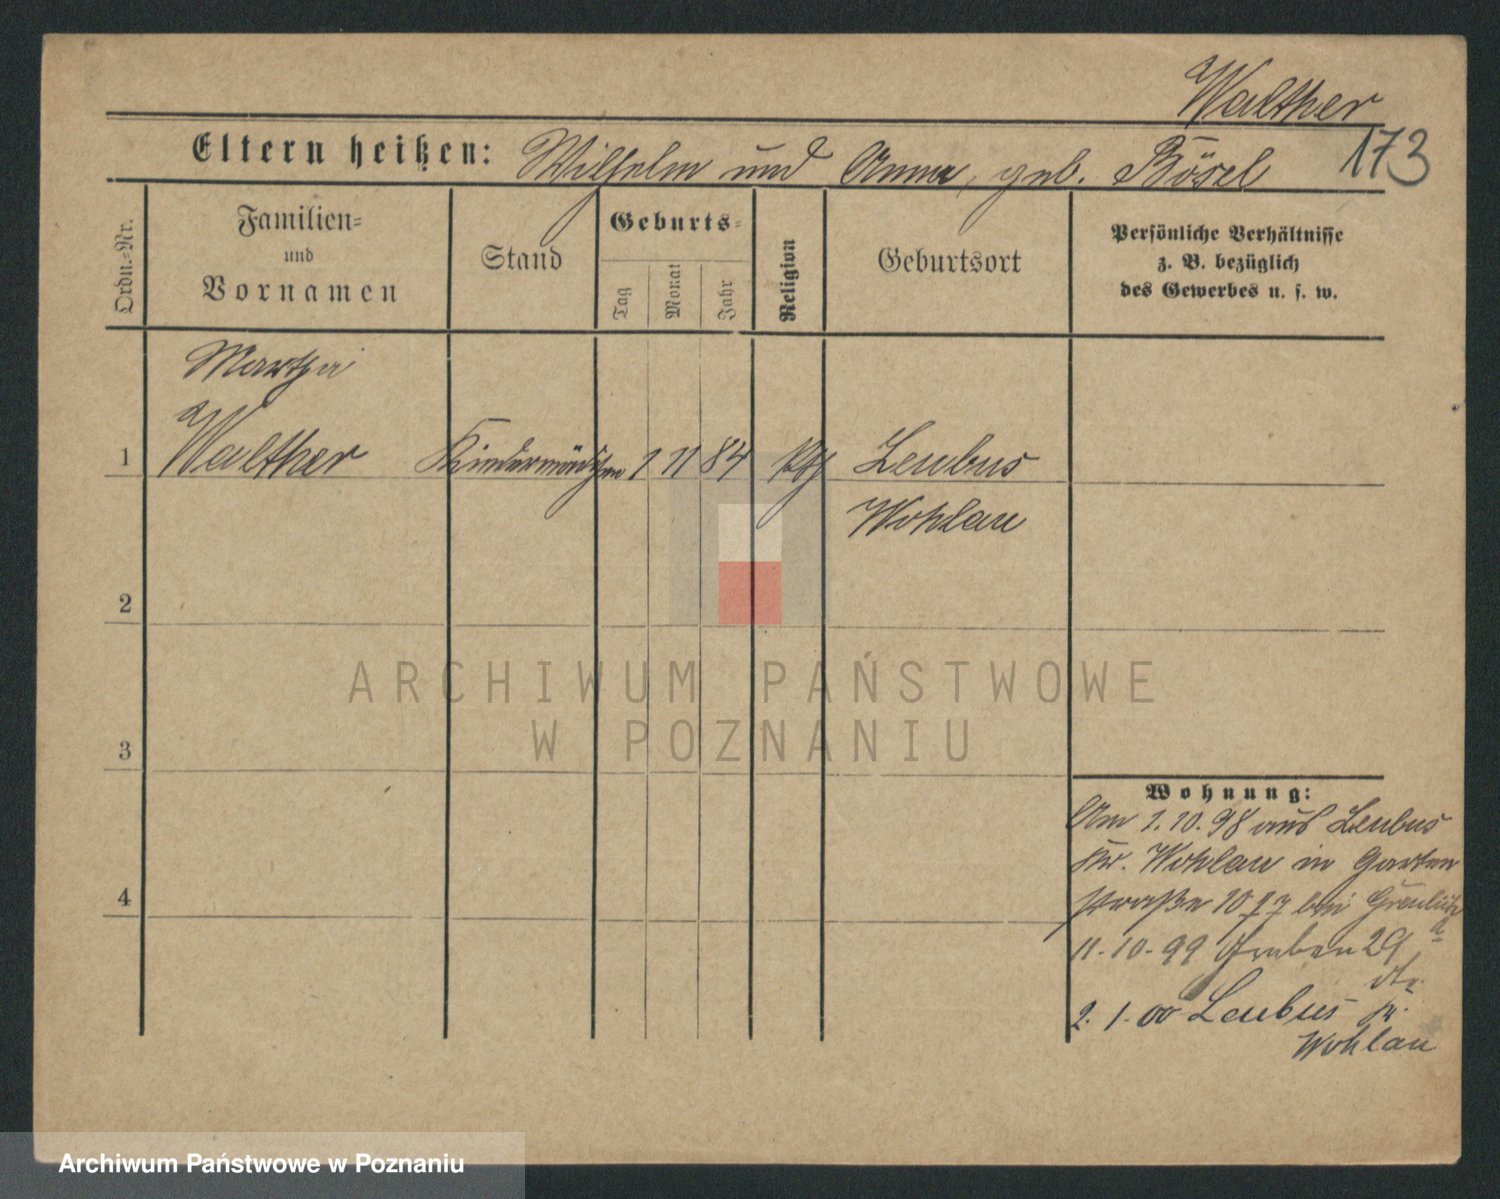 Walther
173
Eltern heißen: Wilhelm und Anna, geb. Bösel
Ordn.-Nr.
Familien-
und
Vornamen
Stand
Geburts-
Tag
Monat
Jahr
Religion
Geburtsort
Persönliche Verhältnisse
z. B. bezüglich
des Gewerbes u. s. w.
Martha
1 Walther Kindermädchen 1 11 84 kth Leubus
Wohlau
2
3
4
Wohnung:
Am 1.10.98 aus Leubus
Kr. Wohlau in Garten
straße 10 bei
11.10.99 Graben 29
2.1.00 Leubus Kr.
Wohlau
ARCHIWUM PAŃSTWOWE
W POZNANIU
Archiwum Państwowe w Poznaniu